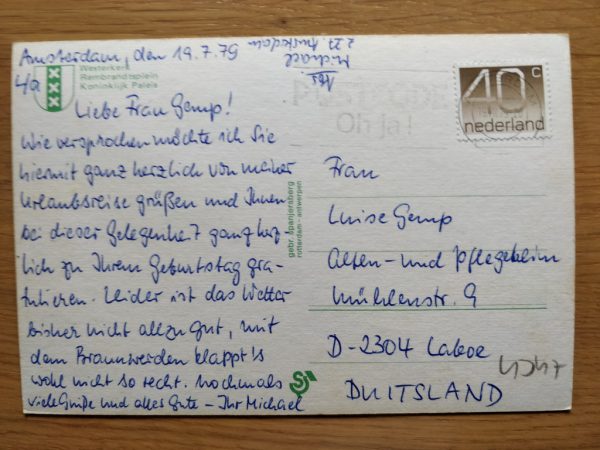 Amsterdam, den 19.7.79
Westerkerk
Rembrandtsplein
Koninklijk Paleis
Liebe Frau Gemp!
Wie versprochen möchte ich Sie
hiermit ganz herzlich von meiner
Urlaubsreise grüßen und Ihnen
bei dieser Gelegenheit ganz herz-
lich zu Ihrem Geburtstag gra-
tulieren. Leider ist das Wetter
bisher nicht allzu gut, mit
dem Braunwerden klappt's
wohl nicht so recht. Nochmals
viele Grüße und alles Gute – Ihr Michael
Abs.
Michael
z.Zt. Amsterdam
gebr. spanjersberg
rotterdam - antwerpen
Oh ja!
40 c
nederland
Frau
Luise Gemp
Alten- und Pflegeheim
Mühlenstr. 9
D-2304 Laboe
DUITSLAND